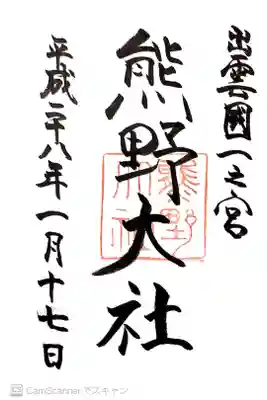 出雲國一之宮
熊野大社
平成二十八年一月十七日
熊野大社
CamScannerでスキャン